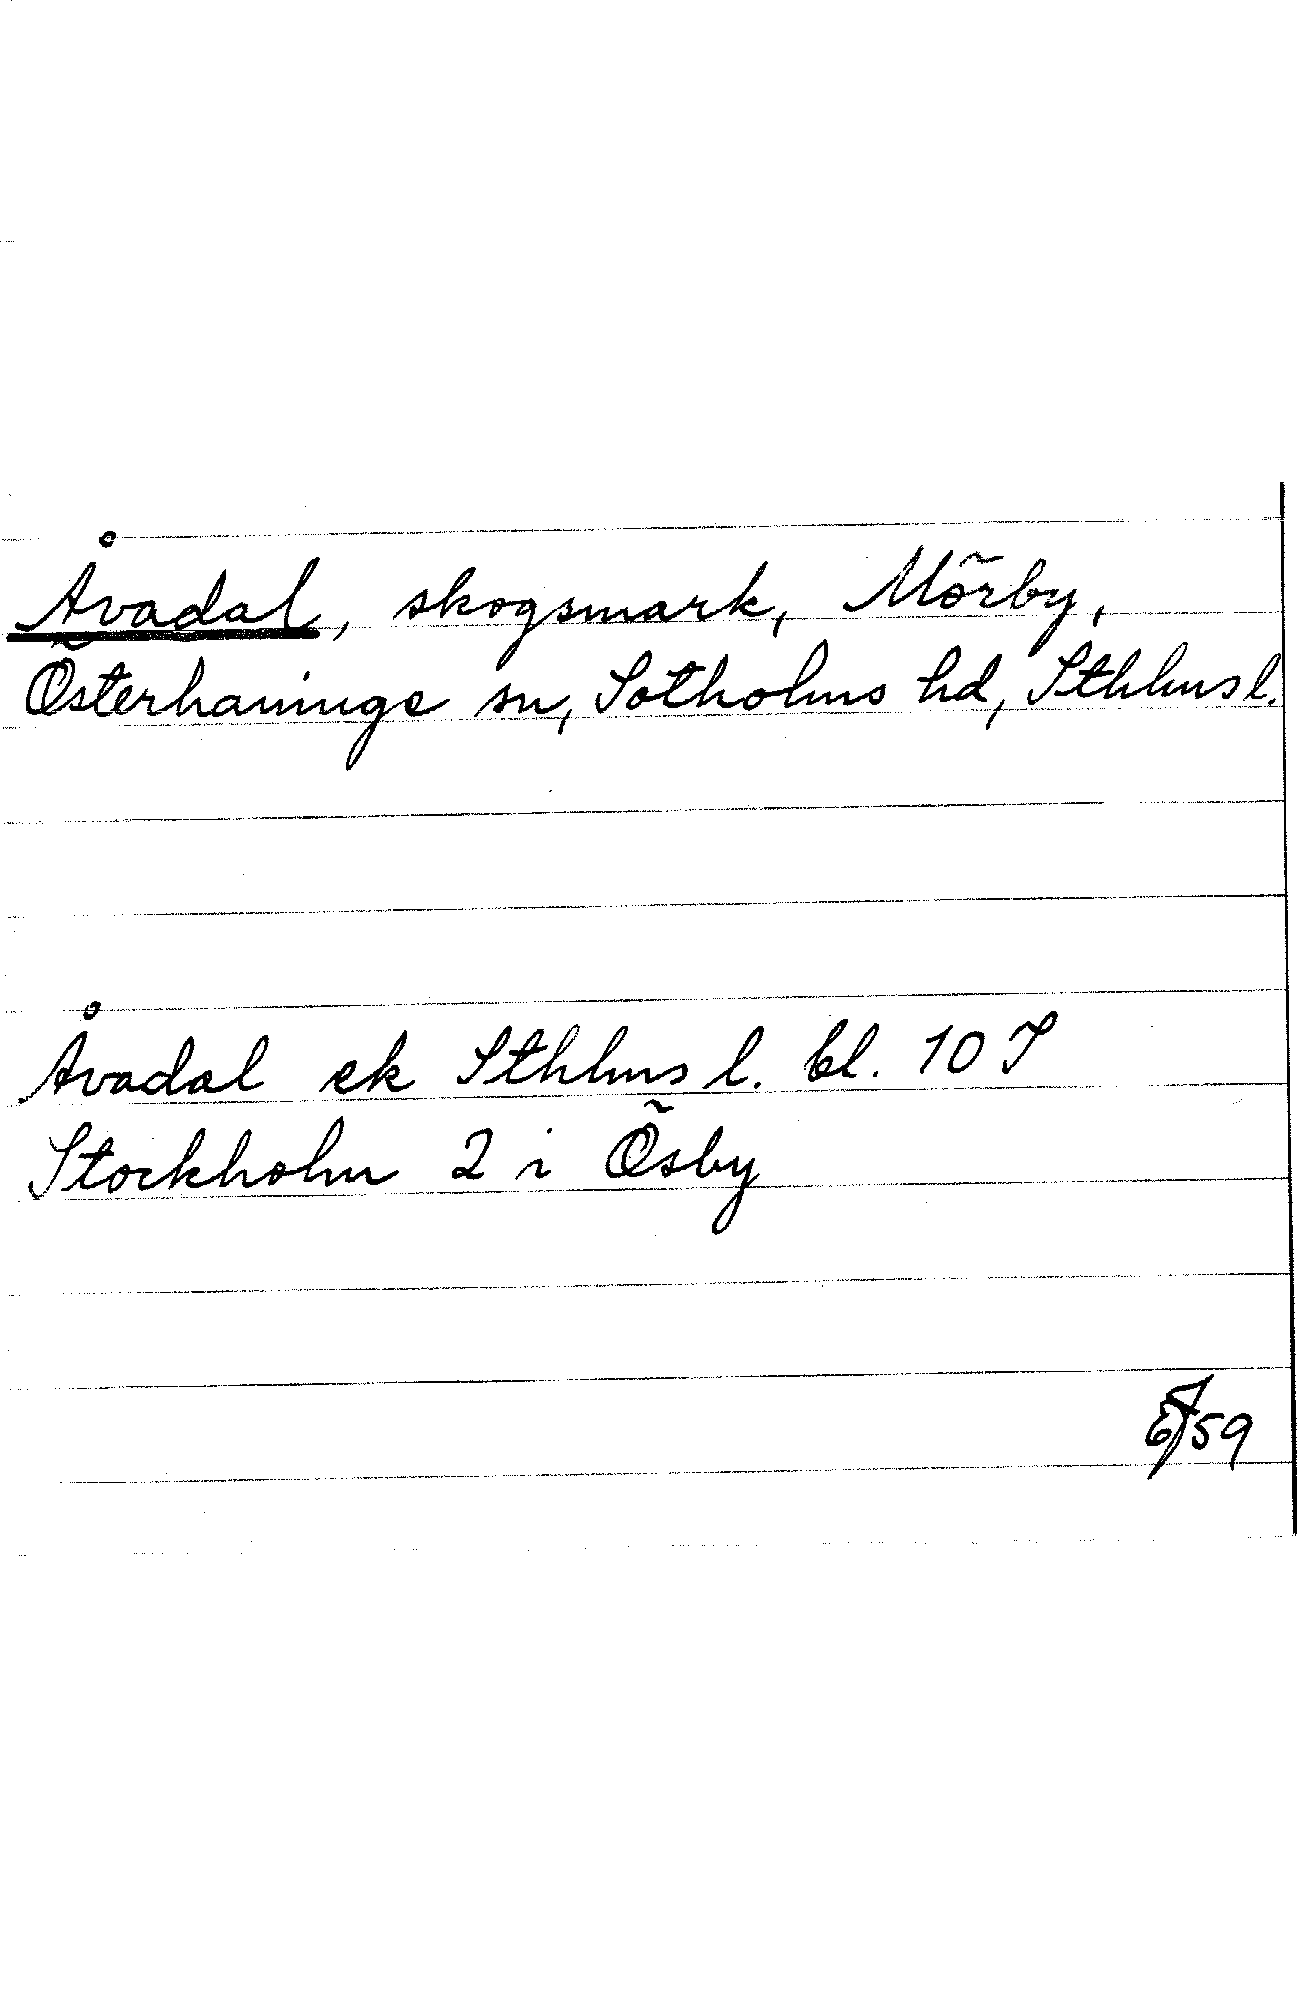 Åvadal, skogsmark, Mörby,
Österhaninge sn, Sotholms hd, Sthlms l.
Åvadal ek Sthlms l. bl. 10 I
Stockholm 2 i Ösby
59